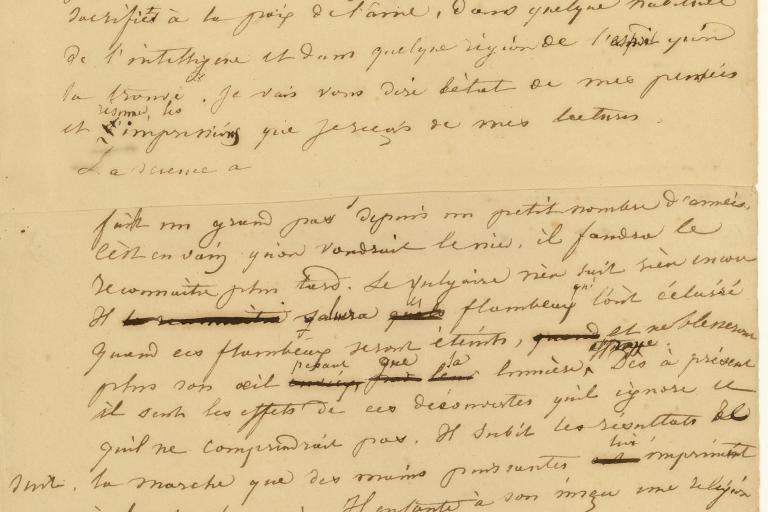 sacrifiés à la paix de l'âme, dans quelque
de l'intelligence et dans quelque région de l'esprit qu'on
la trouve. Je vais vous dire l'état de mes pensées
résumer les
et l'impressions que je reçois de mes lectures.
La science a
fait un grand pas depuis un petit nombre d'années.
C'est en vain qu'on voudrait le nier, il faudra le
reconnaître plus tard. Le vulgaire n'en sait rien encore
Il saura flambeaux l'ont éclairé
quand ces flambeaux seront éteints, et ne blesseront
plus son œil que la lumière. Dès à présent
il sent les effets de ces découvertes qu'il ignore et
qu'il ne comprendrait pas. Il subit les résultats et
suit la marche que des mains puissantes lui impriment
Il enfante à son insçu une religion